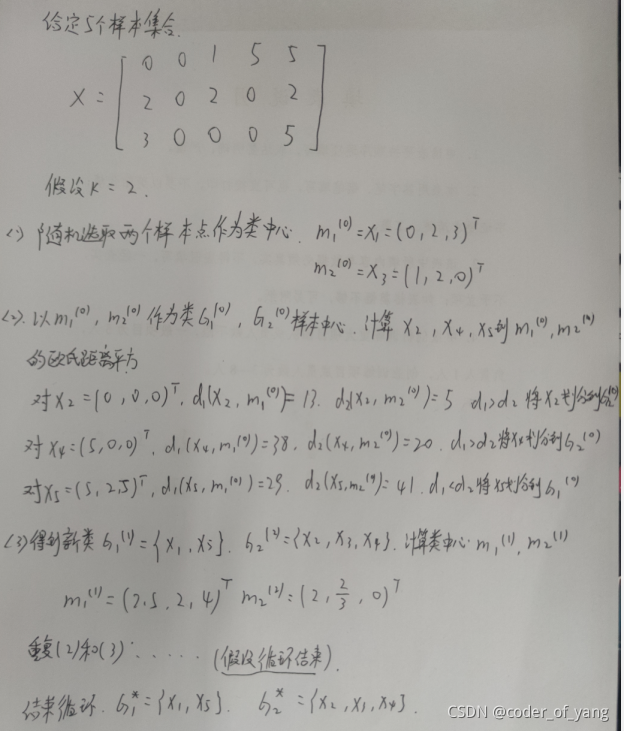 给定5个样本集合.
X = [
0 0 1 5 5
2 0 2 0 2
3 0 0 0 5
]
假设K=2.
(1) 随机选取两个样本点作为类中心. m₁⁽⁰⁾=X₁=(0,2,3)ᵀ
m₂⁽⁰⁾=X₃=(1,2,0)ᵀ
(2). 以m₁⁽⁰⁾, m₂⁽⁰⁾作为类G₁⁽⁰⁾, G₂⁽⁰⁾样本中心. 计算 X₂, X₄, X₅到 m₁⁽⁰⁾, m₂⁽⁰⁾
的欧氏距离平方
对X₂=(0,0,0)ᵀ. d₁(X₂, m₁⁽⁰⁾)=13. d₂(X₂, m₂⁽⁰⁾)=5 d₁>d₂ 将X₂划分到G₂⁽⁰⁾
对X₄=(5,0,0)ᵀ. d₁(X₄, m₁⁽⁰⁾)=38. d₂(X₄, m₂⁽⁰⁾)=20. d₁>d₂将X₄划分到G₂⁽⁰⁾
对X₅=(5,2,5)ᵀ, d₁(X₅, m₁⁽⁰⁾)=29. d₂(X₅, m₂⁽⁰⁾)=41. d₁<d₂将X₅划分到G₁⁽⁰⁾
(3) 得到新类 G₁⁽¹⁾={X₁, X₅}. G₂⁽²⁾={X₂, X₃, X₄}. 计算类中心 m₁⁽¹⁾, m₂⁽¹⁾
m₁⁽¹⁾=(2.5, 2, 4)ᵀ m₂⁽²⁾=(2, 2/3, 0)ᵀ
重复(2)和(3)...... (假设循环结束).
结束循环. G₁*={X₁, X₅}. G₂*={X₂, X₃, X₄}.
CSDN @coder_of_yang